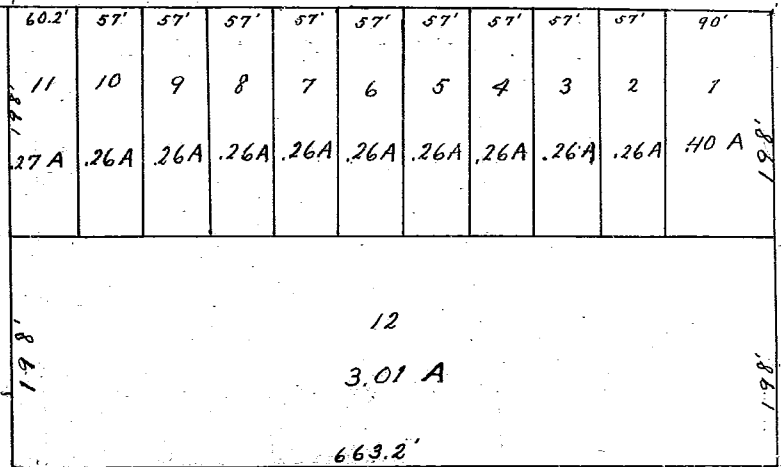 60.2' 57' 57' 57' 57' 57' 57' 57' 57' 57' 90'
11 10 9 8 7 6 5 4 3 2 1
198' 198'
.27 A .26A .26A .26A .26A .26A .26A .26A .26A .26A .40 A
12
198' 198'
3.01 A
663.2'